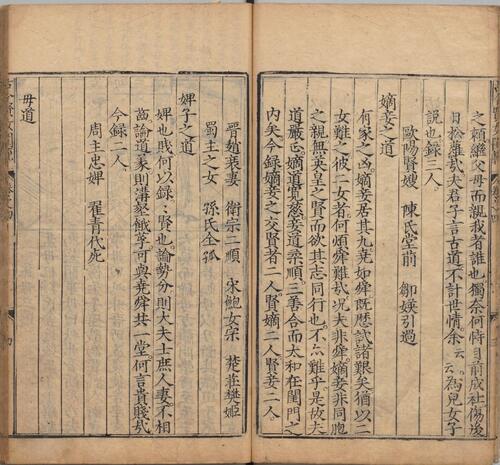 之賴繼父母而親我者誰也獨奈何恃目前成 傷後
日 雍哉夫君子言古道不計世情余云云為兒女子
說也錄三人
歐陽賢嫂 陳氏堂前 鄒媖引過
嫡妾之道
有家之凶嫡妾居其九堯知舜既歷試諸艱矣猶以二
女難之彼二女者何煩舜難哉况夫非舜嫡妾非同胞
之親無英皇之賢而欲其志同行也不亦難乎是故夫
道嚴正嫡道寬慈妾道柔順三善合而太和在閨門之
內矣今錄嫡妾之交賢者二人賢嫡二人賢妾二人
晉趙衰妻 衛宗二順 宋鮑女宗 楚莊樊姬
蜀主之女 孫氏全孤
婢子之道
婢也賤何以錄賢也論勢分則大夫士庶人妻不相
齒論道義則溝壑餓莩可與堯舜共一堂何言貴賤哉
今錄二人
周主忠婢 翟青代死
毋道
四